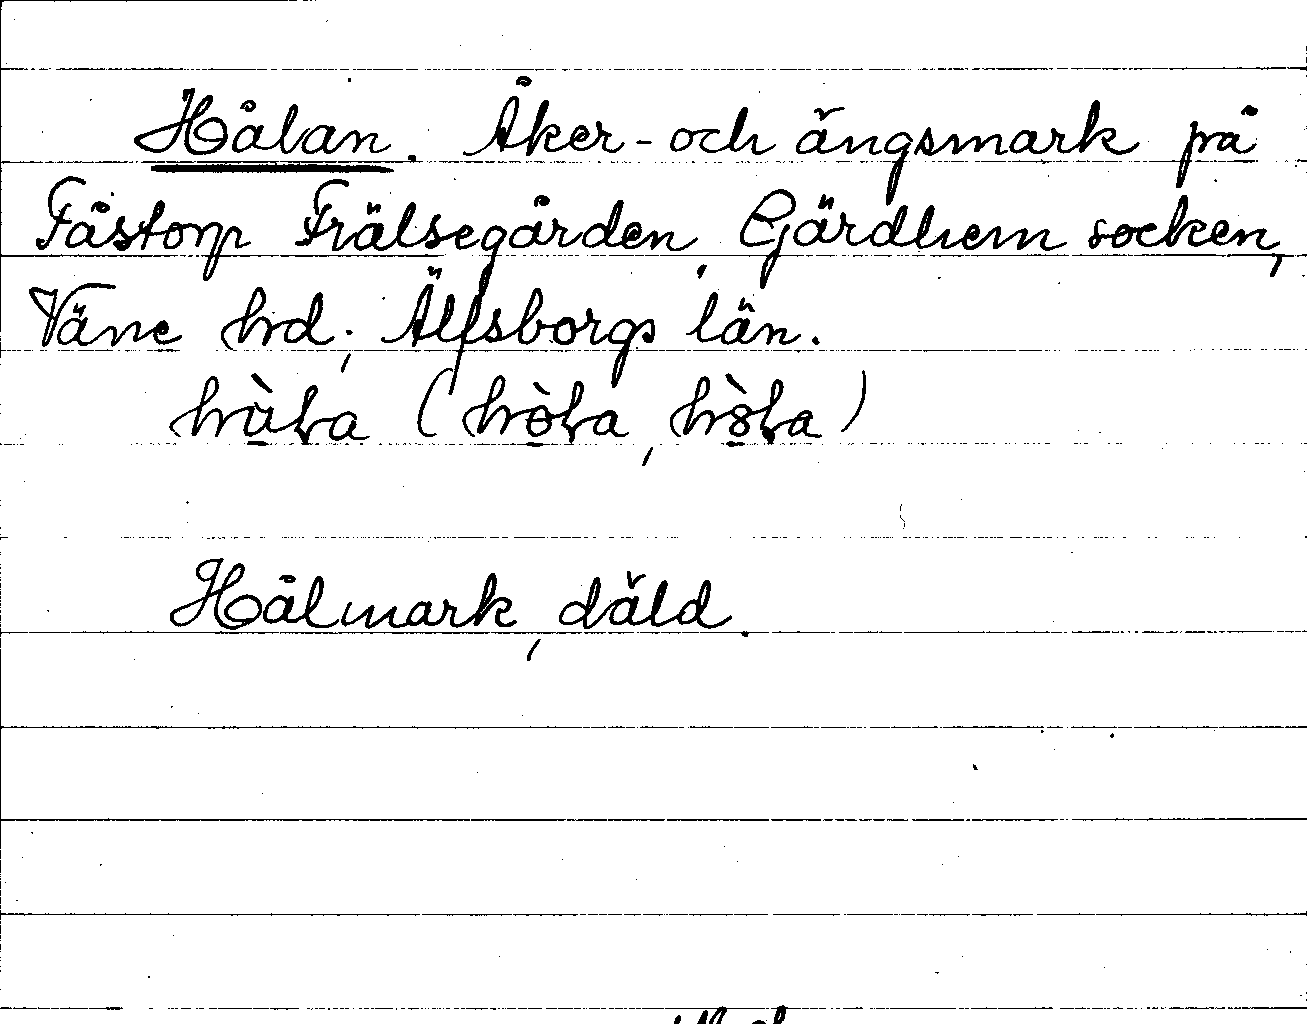 Hålan. Åker- och ängsmark på
Fåstorp Frälsegården, Gärdhem socken,
Väne hrd, Älfsborgs län.

Hålmark, däld.